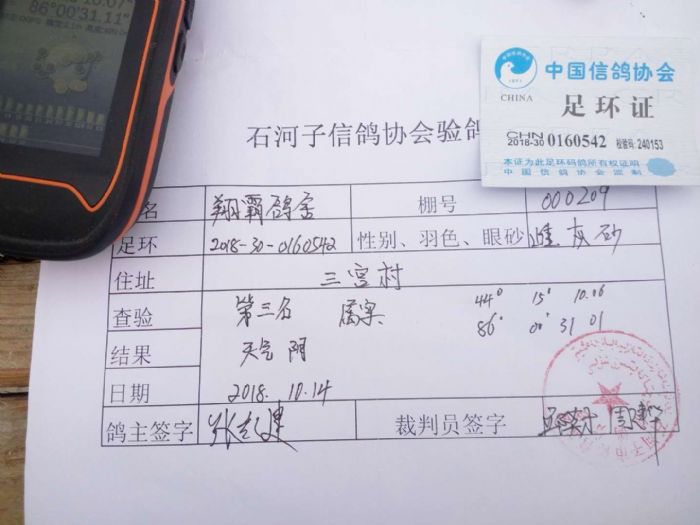 86°00'31.11"
中国信鸽协会
CHINA
足环证
CHN
2018-30 0160542 校验码:240153
本证为此足环码鸽所有权证明
中国信鸽协会监制
石河子信鸽协会验鸽
名 翔霸鸽舍 棚号 000209
足环 2018-30-0160542 性别、羽色、眼砂 雄.灰 砂
住址 三宫村
查验 第三名 属实 44° 15' 10.06
86° 00' 31 01
结果 天气 阴
日期 2018.10.14
鸽主签字 裁判员签字